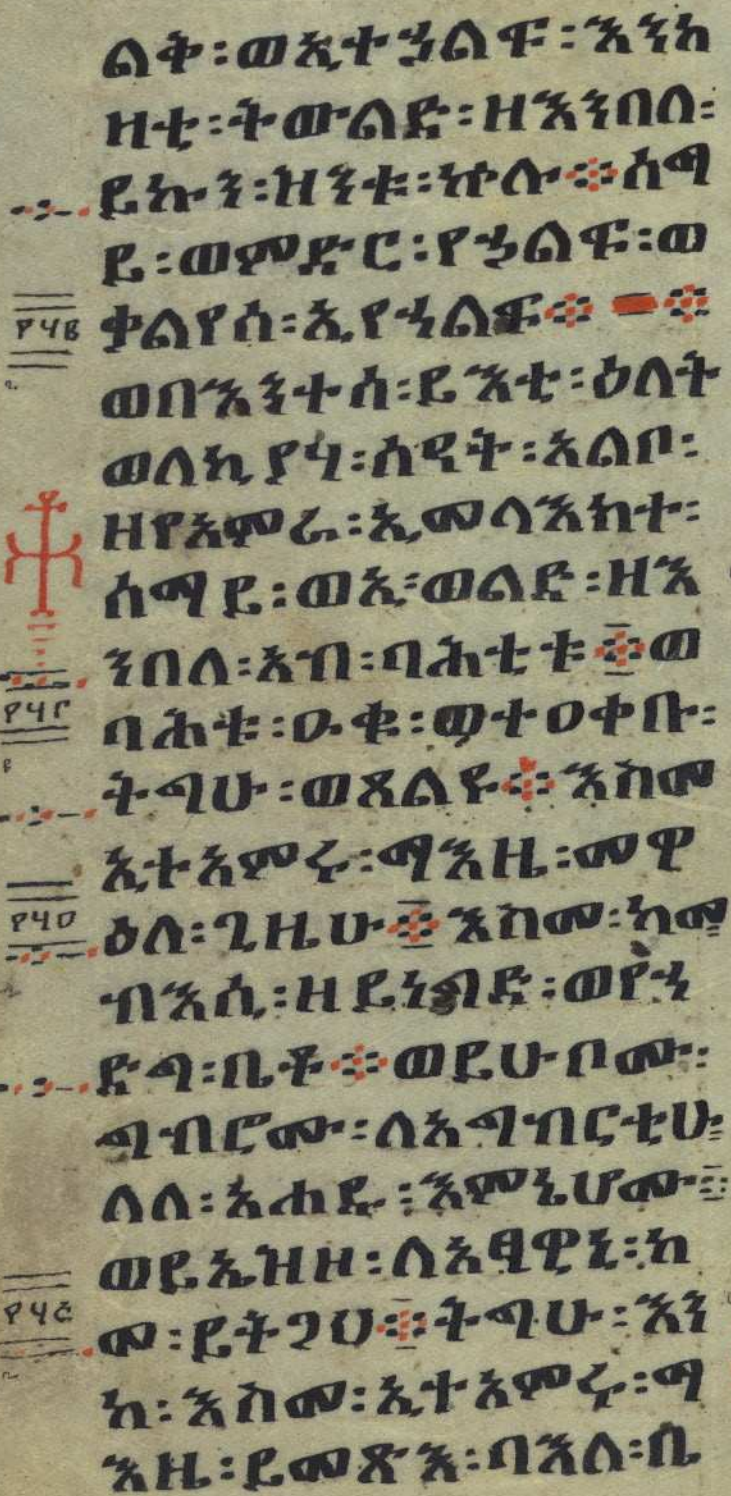 ልቅ፡ወኢተኃልፍ፡እንከ
ዛቲ፡ትውልድ፡ዘእንበለ፡
ይኩን፡ዝንቱ፡ኵሉ፨ሰማ
ይ፡ወምድር፡የኃልፍ፡ወ
ቃልየሰ፡ኢየኃልፍ፨ ፨
ወበእንተሰ፡ይእቲ፡ዕለት
ወለኪያሃ፡ሰዓት፡አልቦ፡
ዘየአምራ፡ኢመላእክተ፡
ሰማይ፡ወኢ፡ወልድ፡ዘእ
ንበለ፡አብ፡ባሕቲቱ፨ወ
ባሕቱ፡ዑቁ፡ወተዐቀቡ፡
ትግሁ፡ወጸልዩ፨እስመ
ኢተአምሩ፡ማእዜ፡መዋ
ዕለ፡ጊዜሁ፨እስመ፡ከመ
ብእሲ፡ዘይነግድ፡ወየኃ
ድግ፡ቤቶ፨ወይሁቦሙ፡
ግብሮሙ፡ለአግብርቲሁ፡
ለለ፡አሐዱ፡እምኔሆሙ፨
ወይኤዝዞ፡ለአፃዊኒ፡ከ
መ፡ይትጋህ፨ትግሁ፡እን
ከ፡እስመ፡ኢተአምሩ፡ማ
እዜ፡ይመጽእ፡ባእለ፡ቤ
፻፺፪
፻፺፫
፻፺፬
፻፺፭